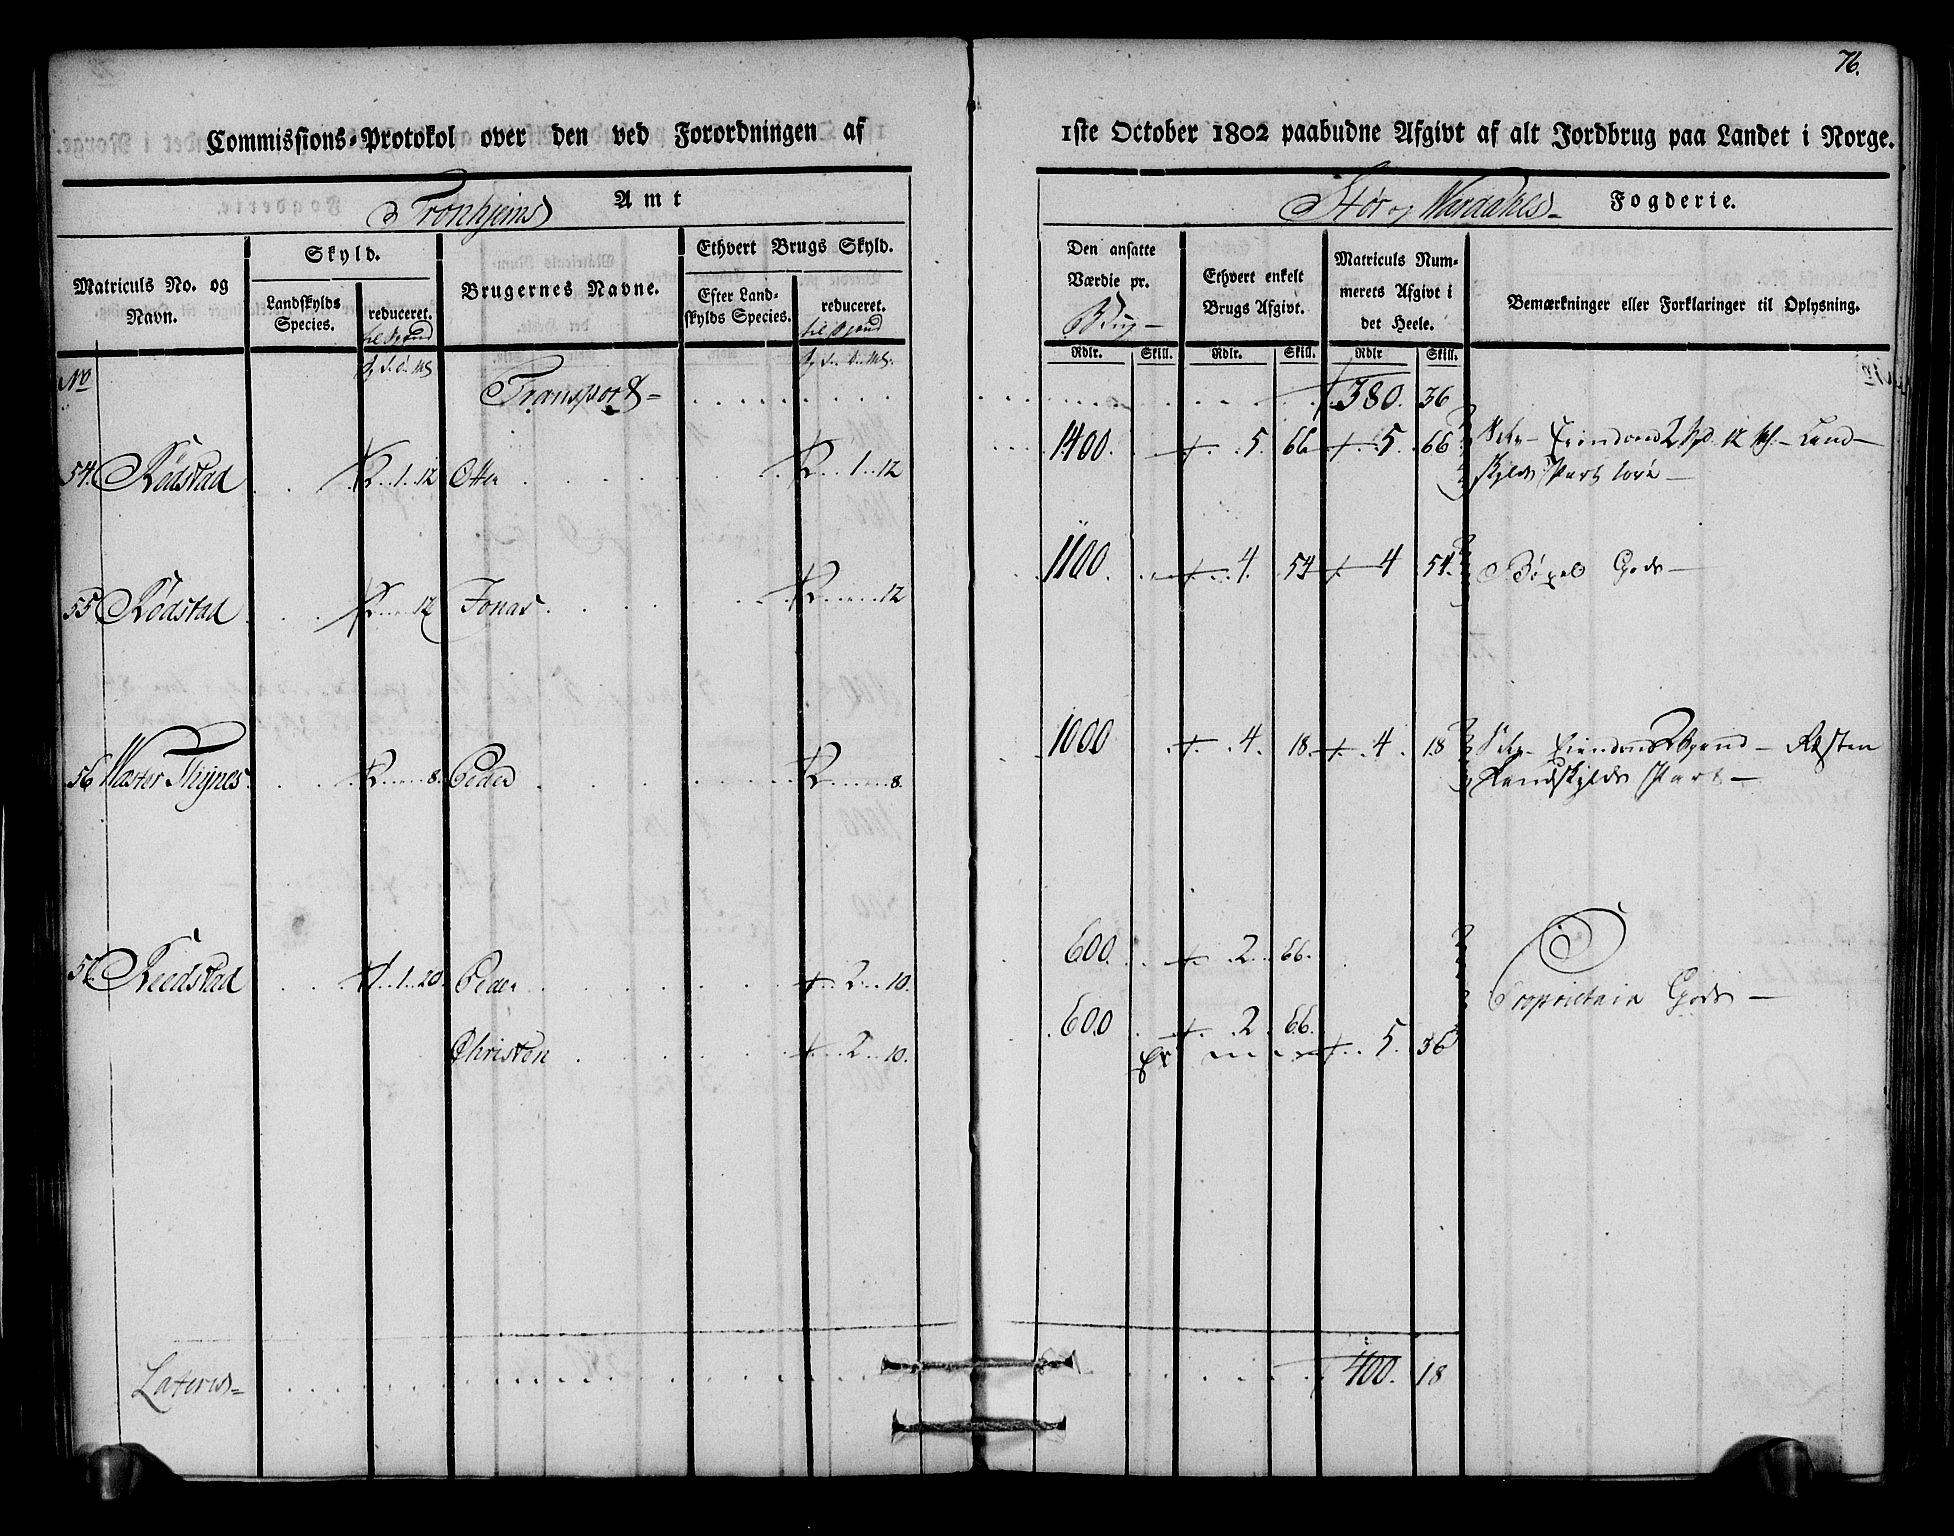 76.
Commissions-Protokol over den ved Forordningen af 1ste October 1802 paabudne Afgivt af alt Jordbrug paa Landet i Norge.
Tronhjems Amt
Stør og Værdahls Fogderie.
Matriculs No. og Navn.
Skyld.
Landskylds Species.
reduceret.
Brugernes Navne.
Ethvert Brugs Skyld.
Efter Landskylds Species.
reduceret.
Den ansatte Værdie pr. Brug
Ethvert enkelt Brugs Afgivt.
Matriculs Nummerets Afgivt i det Heele.
Bemærkninger eller Forklaringer til Oplysning.
Rdlr. Skill. Rdlr. Skill. Rdlr Skill.
No
Transport 380. 36
54. Rødstad 2. 1. 12 Otte 2. 1. 12 1400. 5. 66 5. 66 12 Land-
skylds Part
55 Rødstad 2 12 Jonas. 2 12 1100. 4. 54 4 54. Gods
56 Wæster Thynes 2 8. Peder 2 8. 1000 4. 18 4. 18 Resten
Landskylds Part
57. Reedstad 1. 20. Peder 2 10. 600. 2. 66.
Proprietair Gods
Christen 2 10. 600 2. 66. 5. 36
Laterus 400. 18